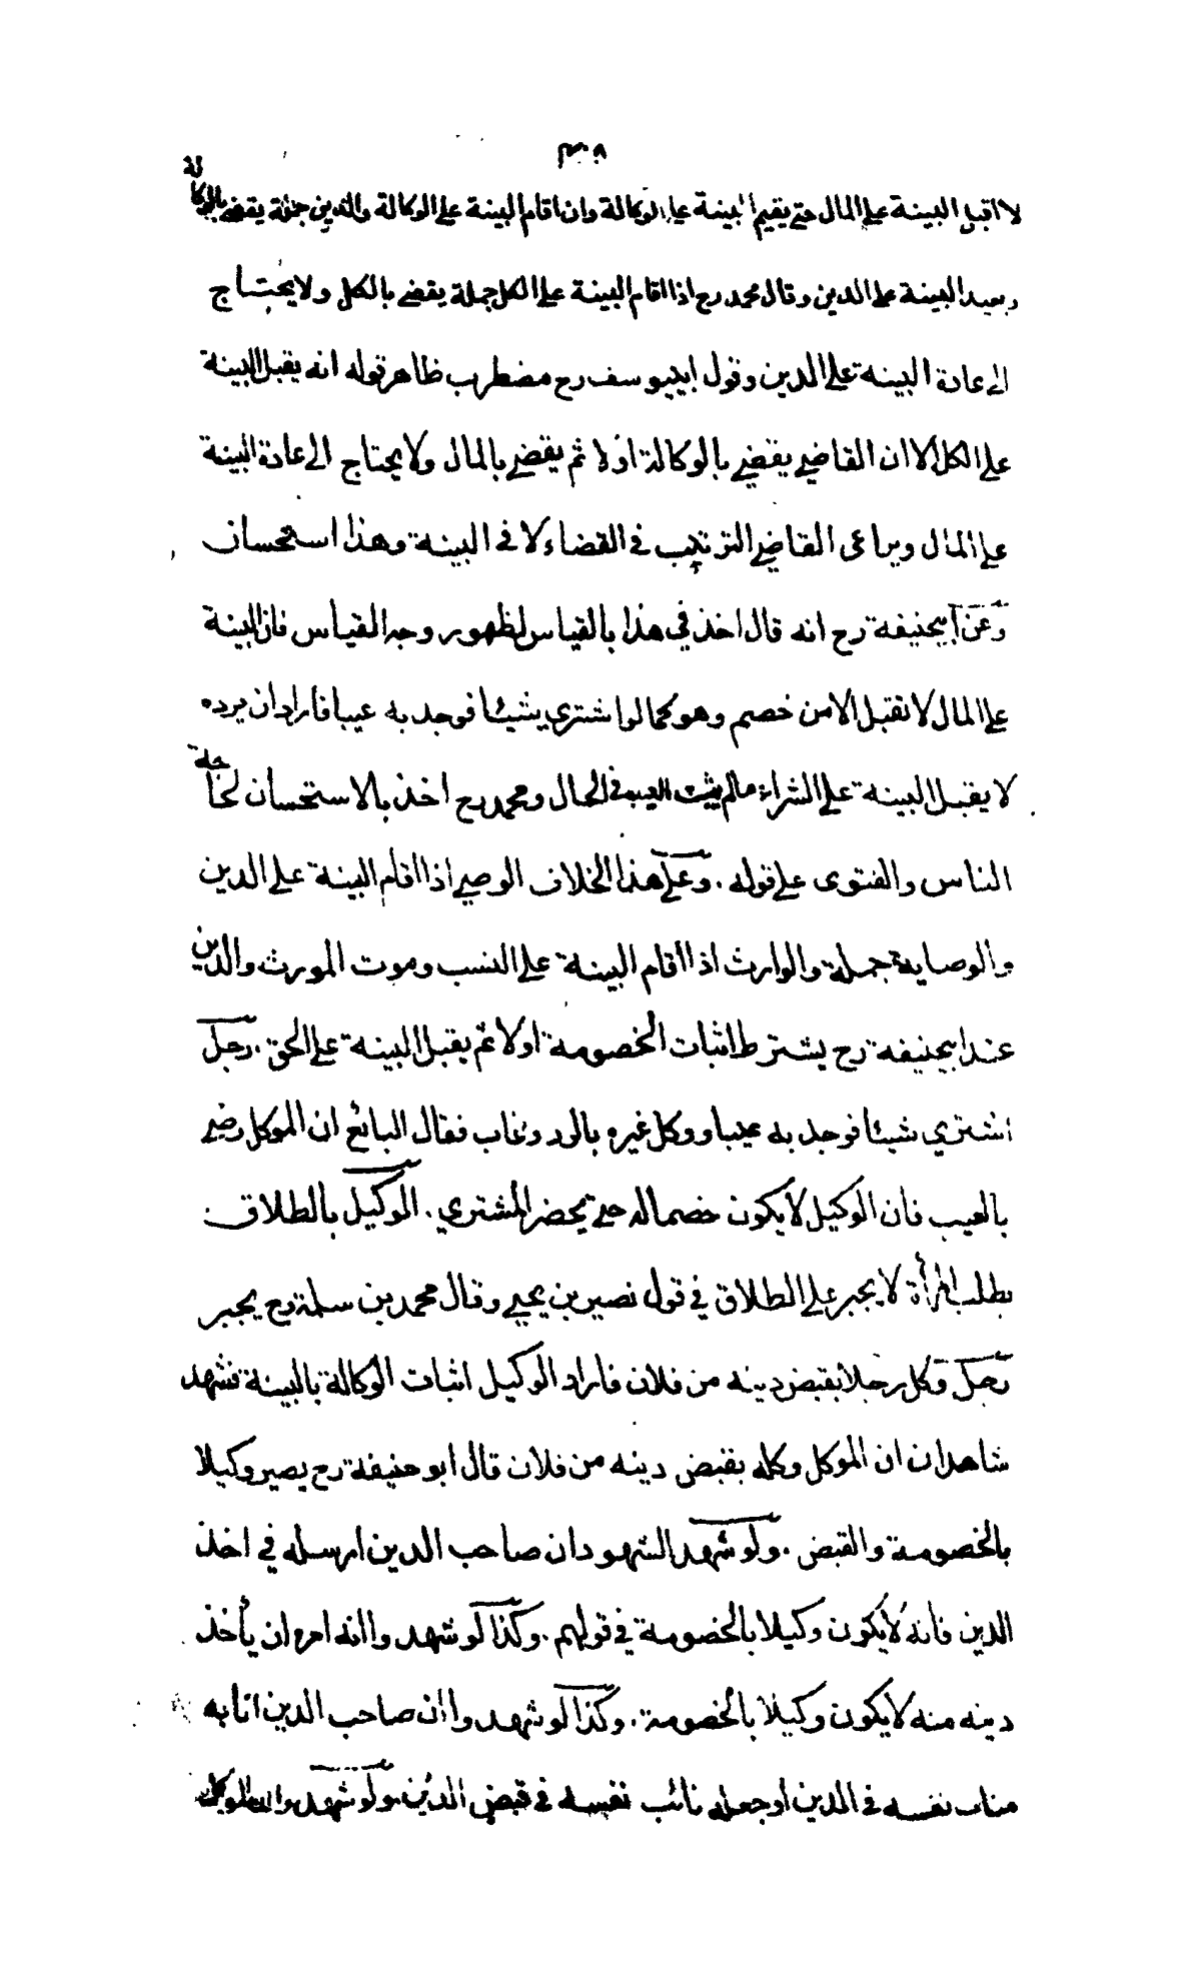 ٣٠٨
لا اقبل البينة على المال حتى يقيم البينة على الوكالة وان اقام البينة على الوكالة والدين جملة يقضى بالوكالة
ويعيد البينة على الدين وقال محمد رح اذا اقام البينة على الكل جملة يقضى بالكل ولا يحتاج
الى عادة البينة على الدين وقول ابيوسف رح مضطرب ظاهر قوله انه يقبل البينة
على الكل الا ان القاضي يقضي بالوكالة اولا ثم يقضي بالمال ولا يحتاج الى عادة البينة
على المال ويراعى القاضي الترتيب في القضاء لا في البينة وهذا استحسان
وعن ابيحنيفة رح انه قال اخذ في هذا بالقياس لظهور وجه القياس فان البينة
على المال لا تقبل الا من خصم وهو كما لو اشترى شيئا فوجد به عيبا فاراد ان يرده
لا يقبل البينة على الشراء مالم يثبت العيب في الحال ومحمد رح اخذ بالاستحسان لحاجة
الناس والفتوى على قوله . وعلى هذا الخلاف الوصي اذا اقام البينة على الدين
والوصاية جملة والوارث اذا اقام البينة على النسب وموت المورث والدين
عند ابيحنيفة رح يشترط اثبات الخصومة اولا ثم يقبل البينة على الحق . رجل
اشترى شيئا فوجد به عيبا ووكل غيره بالرد وغاب فقال البائع ان الموكل رضي
بالعيب فان الوكيل لا يكون خصما له حتى يحضر المشتري . الوكيل بالطلاق
بطلب المرأة لا يجبر على الطلاق في قول نصير بن يحيى وقال محمد بن سلمة رح يجبر
رجل وكل رجلا بقبض دينه من فلان فاراد الوكيل اثبات الوكالة بالبينة فشهد
شاهدان ان الموكل وكله بقبض دينه من فلان قال ابو حنيفة رح يصير وكيلا
بالخصومة والقبض . ولو شهد الشهود ان صاحب الدين ارسله في اخذ
الدين فانه لا يكون وكيلا بالخصومة في قولهم . وكذا لو شهدوا انه امره ان يأخذ
دينه منه لا يكون وكيلا بالخصومة . وكذا لو شهدوا ان صاحب الدين انابه
مناب نفسه في الدين او جعله نائب نفسه في قبض الدين ولو شهدوا ان الموكل